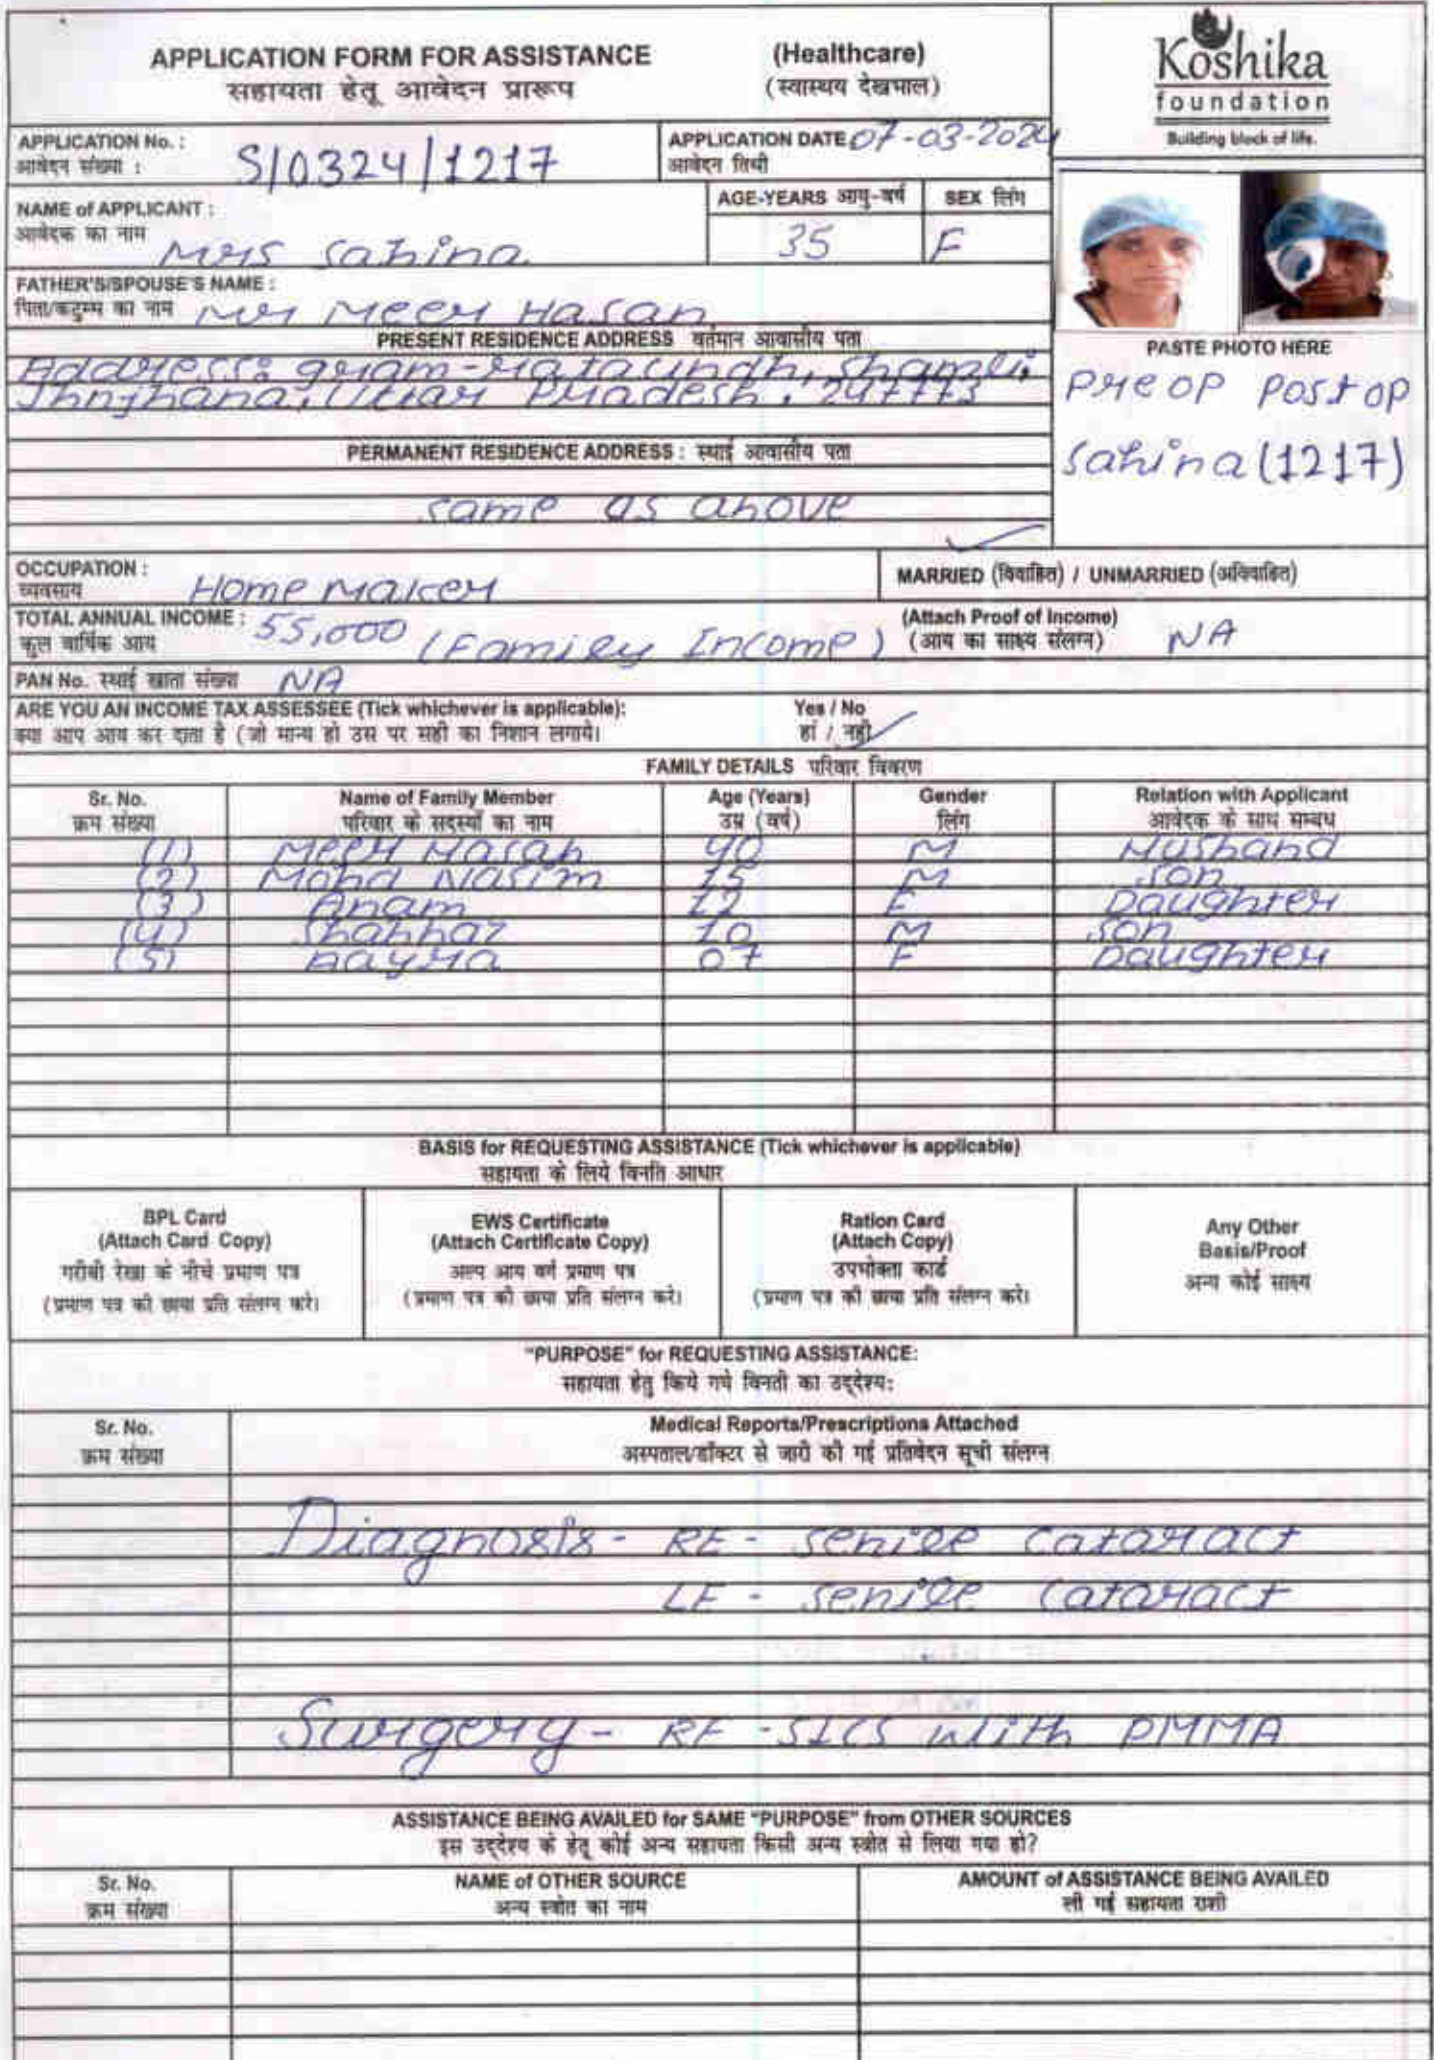 APPLICATION FORM FOR ASSISTANCE (Healthcare)
सहायता हेतू आवेदन प्रारूप (स्वास्थय देखभाल)
Koshika
foundation
Building block of life.
APPLICATION No. : S/0324/1217 APPLICATION DATE 07-03-2024
आवेदन संख्या : आवेदन तिथी
NAME of APPLICANT : AGE-YEARS आयु-वर्ष SEX लिंग
आवेदक का नाम Mrs Sahina 35 F
FATHER'S/SPOUSE'S NAME :
पिता/कटुम्म का नाम Mr Meer Hasan
PRESENT RESIDENCE ADDRESS वर्तमान आवासीय पता
Address: gram- , Shamli,
Jhnjhana, Uttar Pradesh, 247773
PASTE PHOTO HERE
Preop Postop
Sahina (1217)
PERMANENT RESIDENCE ADDRESS : स्थाई आवासीय पता
same as above
OCCUPATION :
व्यवसाय Home Maker
MARRIED (विवाहित) / UNMARRIED (अविवाहित)
TOTAL ANNUAL INCOME : 55,000 (Family Income) (Attach Proof of Income) NA
कुल वार्षिक आय (आय का साक्ष्य संलग्न)
PAN No. स्थाई खाता संख्या NA
ARE YOU AN INCOME TAX ASSESSEE (Tick whichever is applicable): Yes / No
क्या आप आय कर दाता है (जो मान्य हो उस पर सही का निशान लगाये। हां / नही
FAMILY DETAILS परिवार विवरण
Sr. No. Name of Family Member Age (Years) Gender Relation with Applicant
क्रम संख्या परिवार के सदस्यों का नाम उम्र (वर्ष) लिंग आवेदक के साथ सम्बध
(1) Meer Hasan 40 M Husband
(2) Mohd Nasim 15 M Son
(3) Anam 12 F Daughter
(4) 10 M Son
(5) Aayra 07 F Daughter
BASIS for REQUESTING ASSISTANCE (Tick whichever is applicable)
सहायता के लिये विनति आधार
BPL Card
(Attach Card Copy)
गरीबी रेखा के नीचे प्रमाण पत्र
(प्रमाण पत्र की छाया प्रति संलग्न करे।
EWS Certificate
(Attach Certificate Copy)
अल्प आय वर्ग प्रमाण पत्र
(प्रमाण पत्र की छाया प्रति संलग्न करे।
Ration Card
(Attach Copy)
उपभोक्ता कार्ड
(प्रमाण पत्र की छाया प्रति संलग्न करे।
Any Other
Basis/Proof
अन्य कोई साक्ष्य
"PURPOSE" for REQUESTING ASSISTANCE:
सहायता हेतु किये गये विनती का उद्देश्य:
Sr. No. Medical Reports/Prescriptions Attached
क्रम संख्या अस्पताल/डॉक्टर से जारी की गई प्रतिवेदन सूची संलग्न
Diagnosis - RE - senile cataract
LE - senile cataract
Surgery - RE - SICS with PMMA
ASSISTANCE BEING AVAILED for SAME "PURPOSE" from OTHER SOURCES
इस उद्देश्य के हेतू कोई अन्य सहायता किसी अन्य स्त्रोत से लिया गया हो?
Sr. No. NAME of OTHER SOURCE AMOUNT of ASSISTANCE BEING AVAILED
क्रम संख्या अन्य स्त्रोत का नाम ली गई सहायता राशी